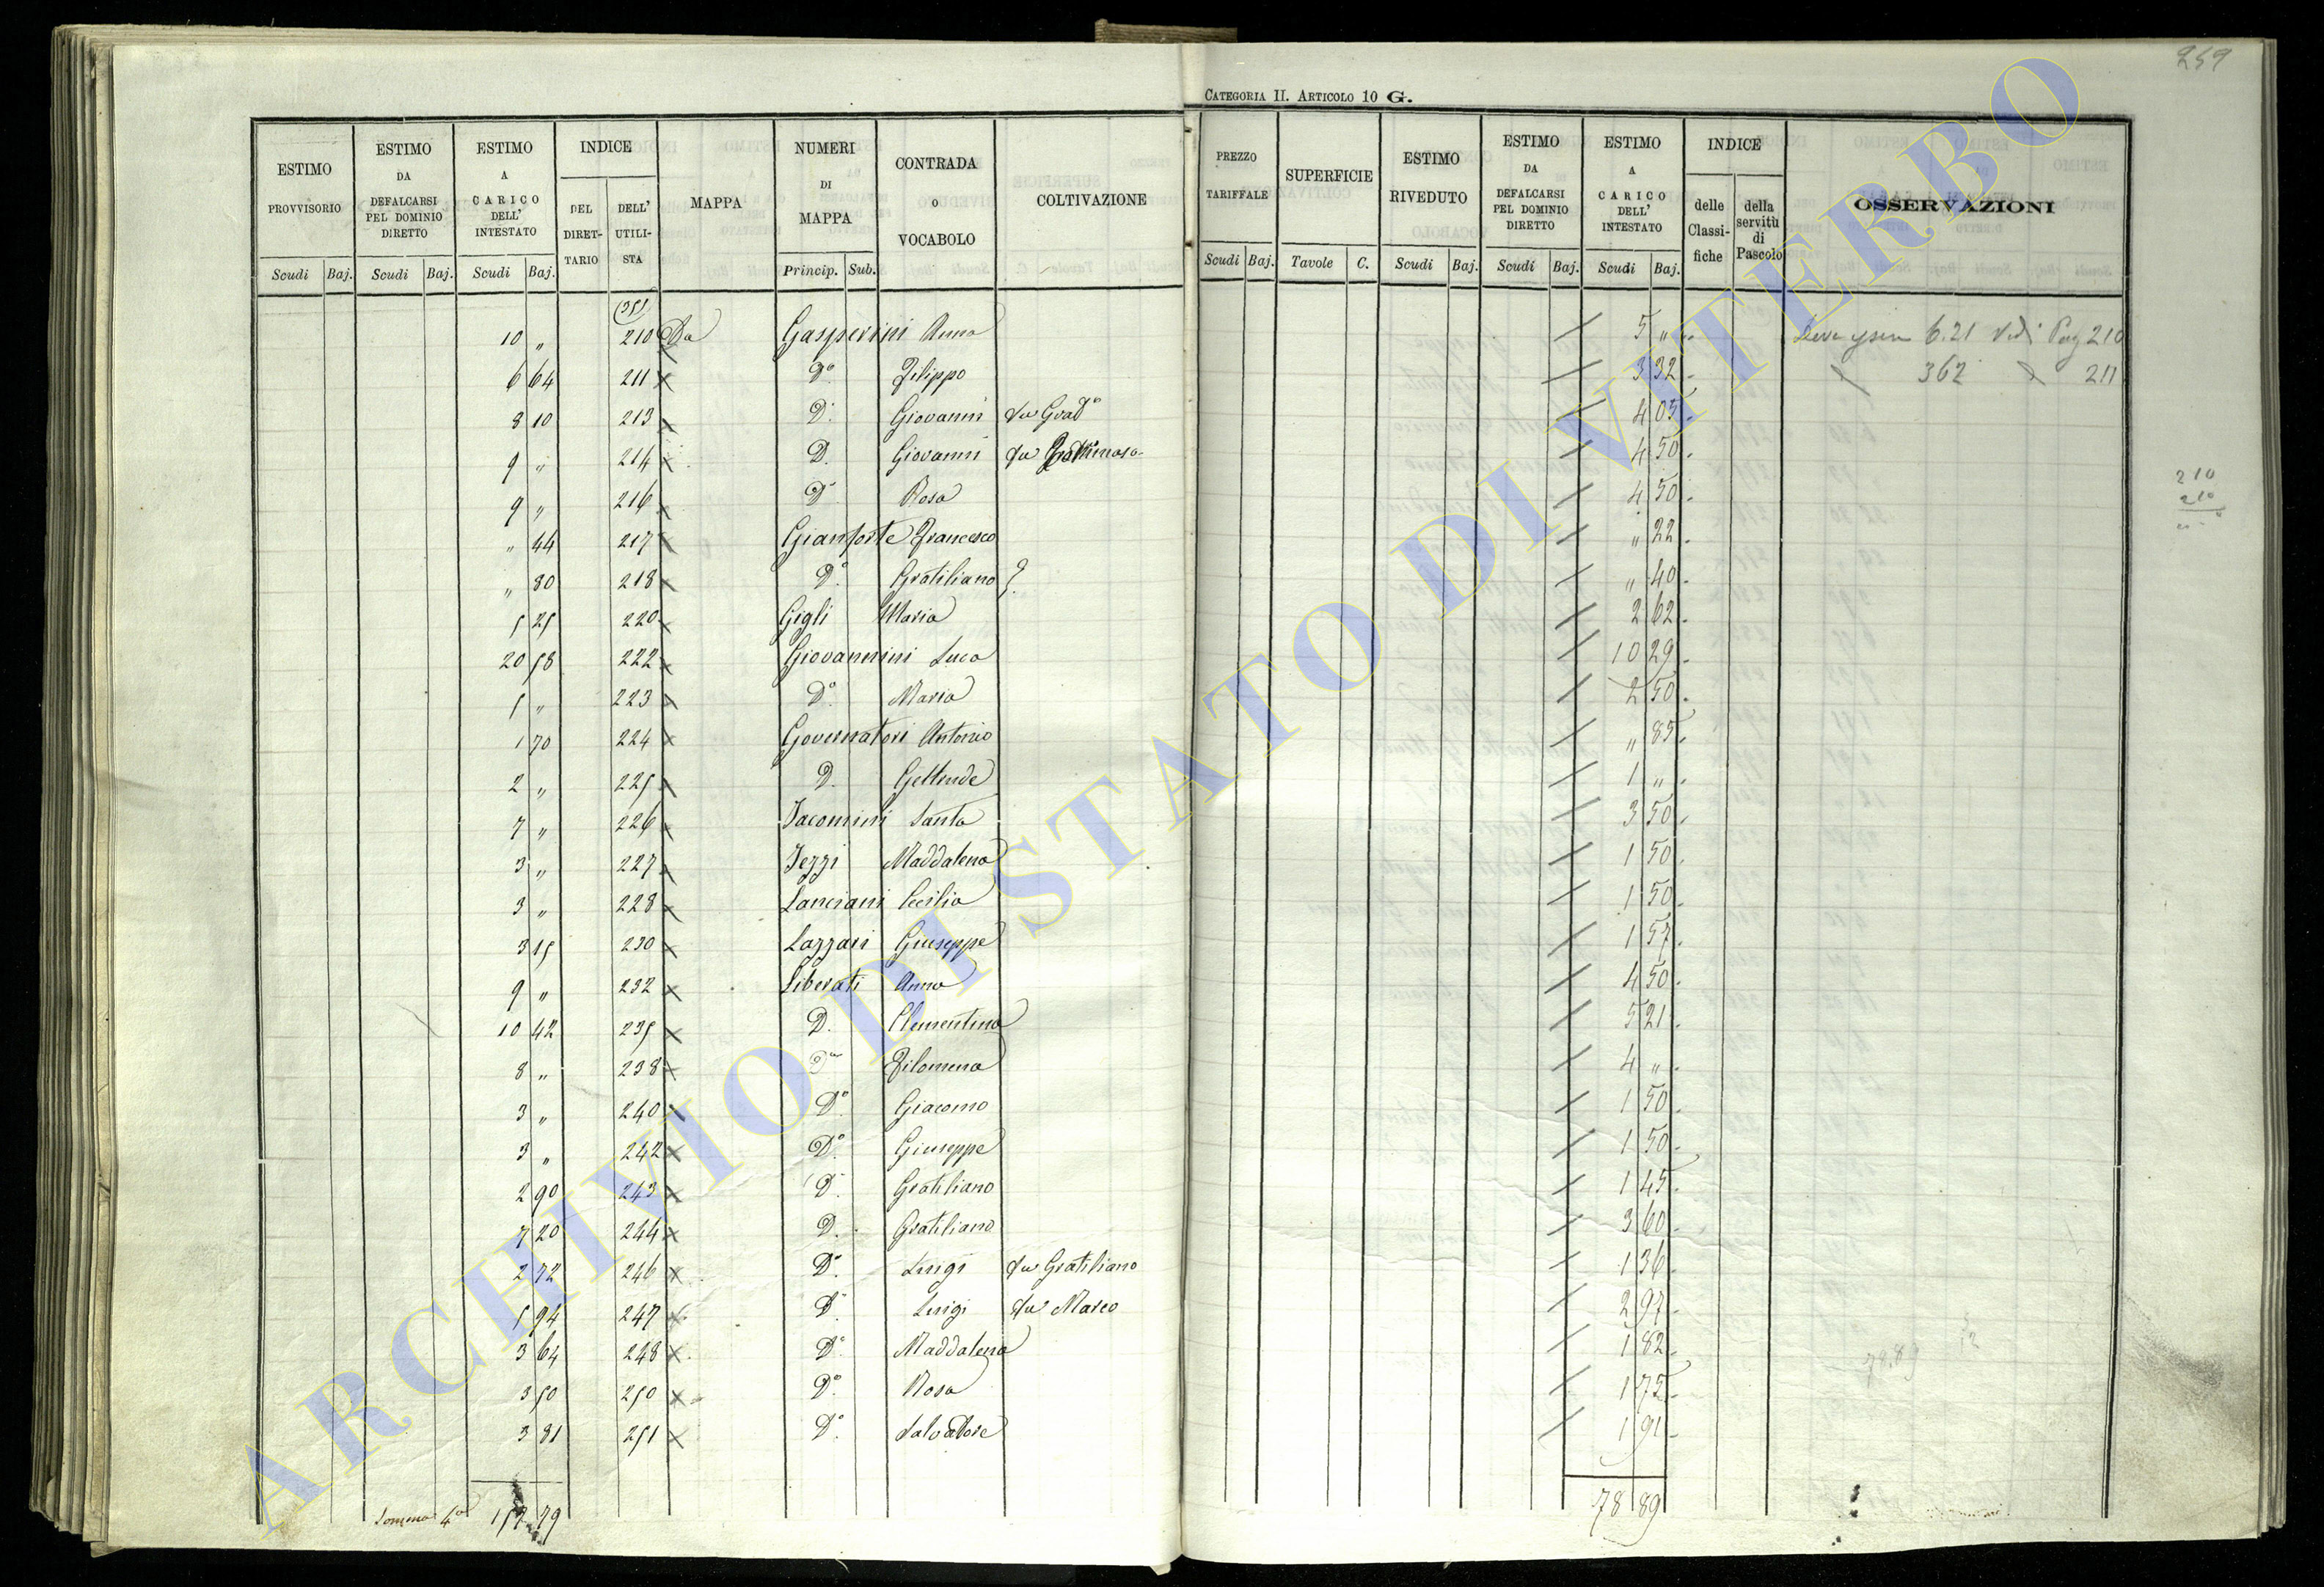 259
CATEGORIA II. ARTICOLO 10 G.
ESTIMO PROVVISORIO
ESTIMO DA DEFALCARSI PEL DOMINIO DIRETTO
ESTIMO A CARICO DELL' INTESTATO
INDICE
DEL DIRETTARIO
DELL' UTILISTA
MAPPA
NUMERI DI MAPPA
CONTRADA O VOCABOLO
COLTIVAZIONE
PREZZO TARIFFALE
SUPERFICIE
ESTIMO RIVEDUTO
ESTIMO DA DEFALCARSI PEL DOMINIO DIRETTO
ESTIMO A CARICO DELL' INTESTATO
INDICE
delle Classifiche
della servitù di Pascolo
OSSERVAZIONI
Scudi Baj. Scudi Baj. Scudi Baj. Princip. Sub. Scudi Baj. Tavole C. Scudi Baj. Scudi Baj. Scudi Baj.
10 " 210 Da Gasperini Anna / 5 " 6.21 Vedi Pag 210
6 64 211 x Do Filippo / 3 32 362 211
8 10 213 x D. Giovanni fu Grado / 4 05
9 " 214 x D. Giovanni fu / 4 50
9 " 216 x D. Rosa / 4 50
" 44 217 x Gianforte Francesco / " 22
" 80 218 x Do Gratiliano ? / " 40
5 25 220 x Gigli Maria / 2 62
20 58 222 x Giovannini Luca / 10 29
5 " 223 x Do Maria / 2 50
1 70 224 x Governatori Antonio / " 85
2 " 225 x D. Geltrude / 1 "
7 " 226 x Jacomini Santa / 3 50
3 " 227 x Jezzi Maddalena / 1 50
3 " 228 x Lanciani Cecilia / 1 50
3 15 230 x Lazzari Giuseppe / 1 57
9 " 232 x Liberati Anna / 4 50
10 42 235 x D. Clementina / 5 21
8 " 238 x Do Filomena / 4 "
3 " 240 x Do Giacomo / 1 50
3 " 242 x Do Giuseppe / 1 50
2 90 243 x D. Gratiliano / 1 45
7 20 244 x D. Gratiliano / 3 60
2 72 246 x Do Luigi fu Gratiliano / 1 36
5 94 247 x D. Luigi fu Marco / 2 97
3 64 248 x Do Maddalena / 1 82
3 50 250 x Do Rosa / 1 75
3 81 251 x Do Salvatore / 1 91
Somma 4a 157 79 78 89
210
210
78.89
ARCHIVIO DI STATO DI VITERBO